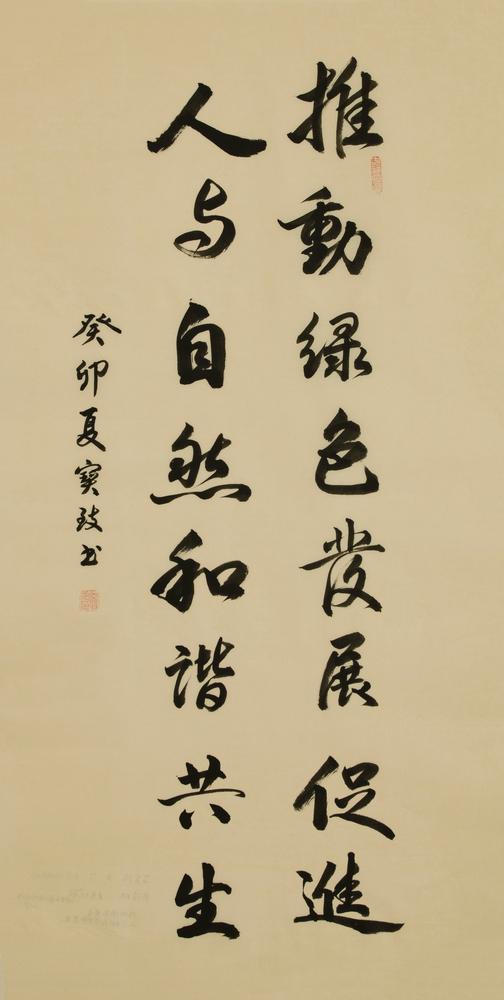 推動绿色發展促進
人与自然和谐共生
癸卯夏寶玫书